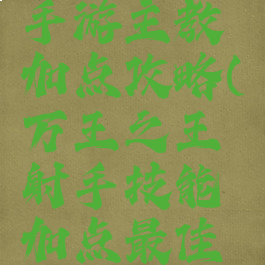 手游主教
加点攻略(
万王之王
射手技能
加点最佳